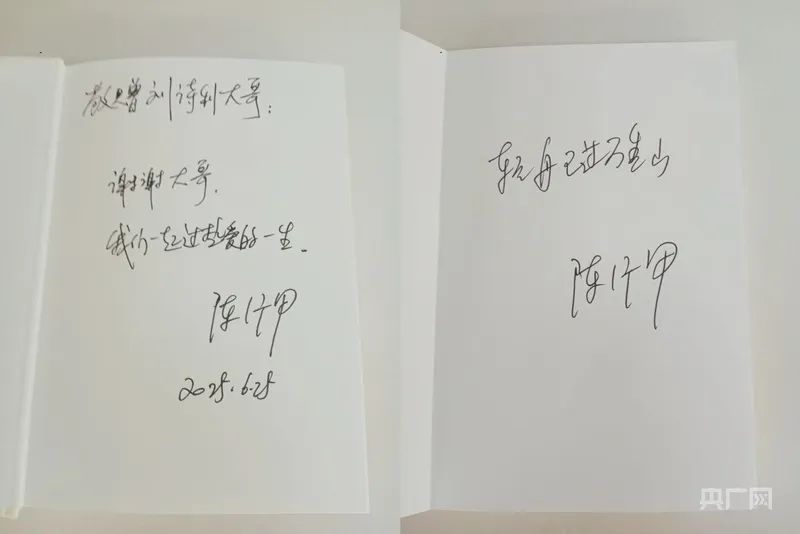 敬赠刘诗利大哥：
谢谢大哥，
我们一起过热爱的一生。
陈行甲
2025.6.25
轻舟已过万重山
陈行甲
央广网